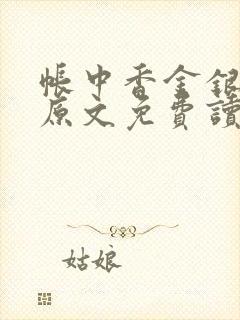 帳中香金銀
原文免費讀
姑娘